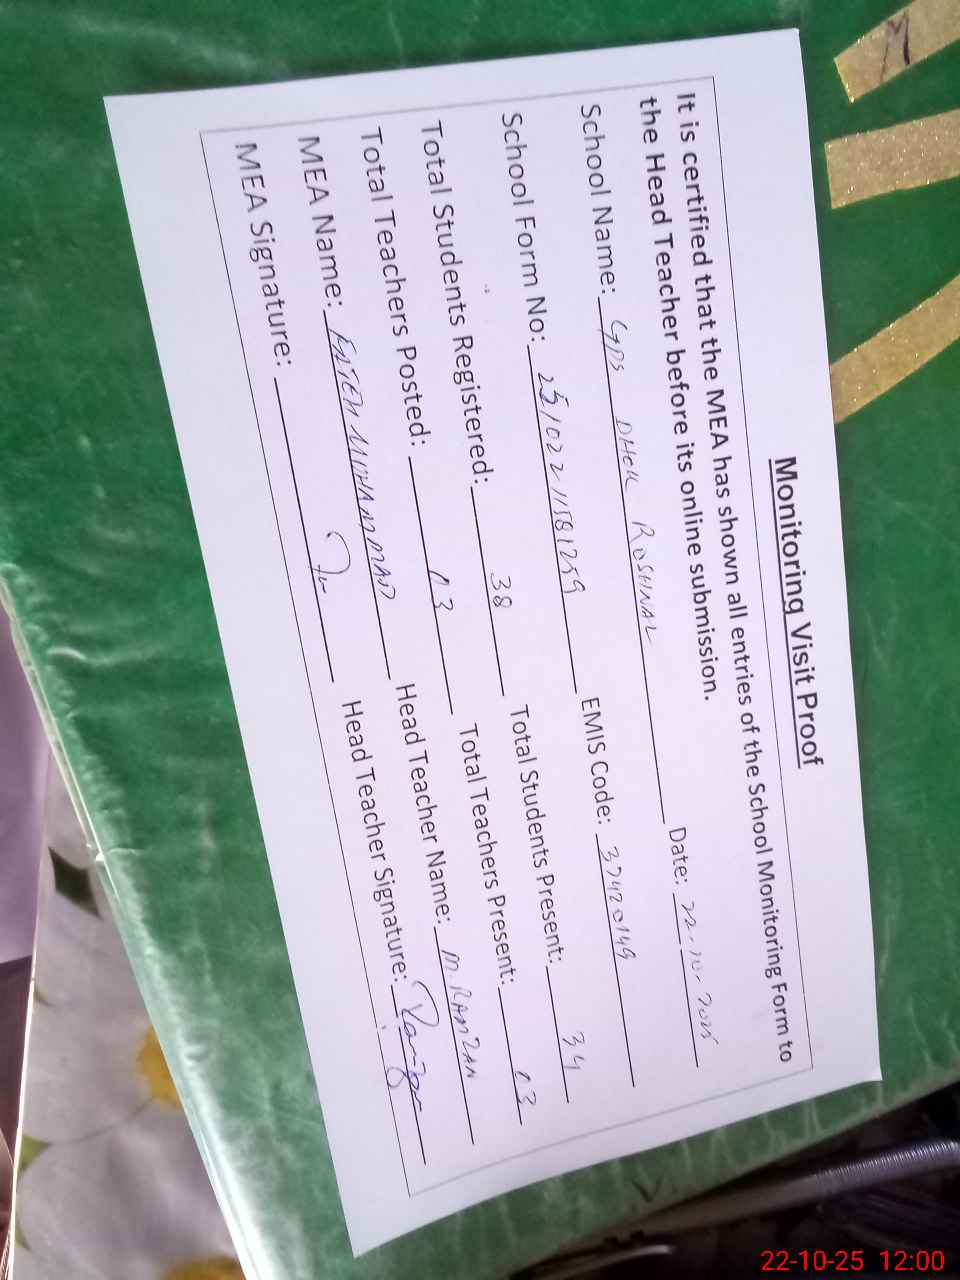 Monitoring Visit Proof
It is certified that the MEA has shown all entries of the School Monitoring Form to
the Head Teacher before its online submission.
School Name: GPS DHOK ROSHINAL Date: 22-10-2025
School Form No: 251022 11581259 EMIS Code: 37420149
Total Students Registered: 38 Total Students Present: 34
Total Teachers Posted: 03 Total Teachers Present: 03
MEA Name: FATEH MUHAMMAD Head Teacher Name: M. RAMZAN
MEA Signature: Head Teacher Signature:
22-10-25 12:00